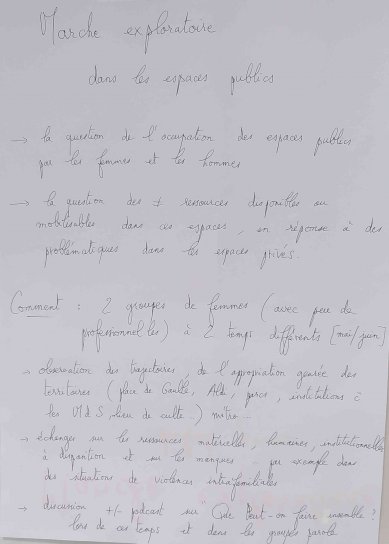 Marche exploratoire
dans les espaces publics
→ la question de l'occupation des espaces publics
par les femmes et les hommes
→ la question des ± ressources disponibles ou
mobilisables dans ces espaces, en réponse à des
problématiques dans les espaces privés.
Comment : 2 groupes de femmes (avec peu de
professionnel les) à 2 temps différents [mai/juin]
→ observation des trajectoires, de l'appropriation genrée des
territoires (place de Gaulle, Aldi, parcs, institutions c
les MdS lieu de culte..) métro...
→ échanges sur les ressources matérielles, humaines, institutionnelles
à disposition et sur les manques par exemple dans
des situations de violences intrafamiliales
→ discussion +/- podcast sur Que Peut-on faire ensemble ?
lors de ces temps et dans les groupes parole